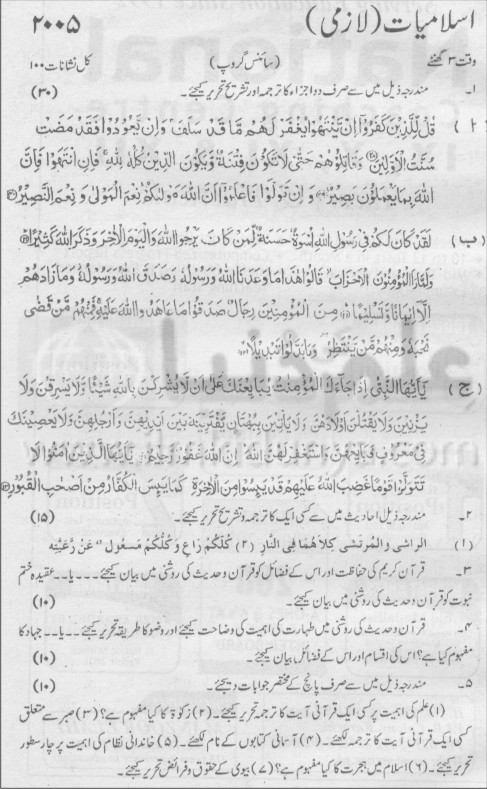 اسلامیات (لازمی) ۲۰۰۵
وقت ۳ گھنٹے (سائنس گروپ) کل نشانات ۱۰۰
۱۔ مندرجہ ذیل میں سے صرف دو اجزاء کا ترجمہ اور تشریح تحریر کیجئے۔ (۳۰)
(۱) قُلْ لِلَّذِيْنَ كَفَرُوْا اِنْ يَّنْتَهُوْا يُغْفَرْ لَهُمْ مَّا قَدْ سَلَفَ وَاِنْ يَّعُوْدُوْا فَقَدْ مَضَتْ
سُنَّتُ الْاَوَّلِيْنَ وَقَاتِلُوْهُمْ حَتّٰى لَا تَكُوْنَ فِتْنَةٌ وَّيَكُوْنَ الدِّيْنُ كُلُّهُ لِلّٰهِ فَاِنِ انْتَهَوْا فَاِنَّ
اللّٰهَ بِمَا يَعْمَلُوْنَ بَصِيْرٌ وَاِنْ تَوَلَّوْا فَاعْلَمُوْا اَنَّ اللّٰهَ مَوْلٰىكُمْ نِعْمَ الْمَوْلٰى وَنِعْمَ النَّصِيْرُ
(ب) لَقَدْ كَانَ لَكُمْ فِيْ رَسُوْلِ اللّٰهِ اُسْوَةٌ حَسَنَةٌ لِّمَنْ كَانَ يَرْجُوا اللّٰهَ وَالْيَوْمَ الْاٰخِرَ وَذَكَرَ اللّٰهَ كَثِيْرًا
وَلَمَّا رَاَ الْمُؤْمِنُوْنَ الْاَحْزَابَ قَالُوْا هٰذَا مَا وَعَدَنَا اللّٰهُ وَرَسُوْلُهُ وَصَدَقَ اللّٰهُ وَرَسُوْلُهُ وَمَا زَادَهُمْ
اِلَّا اِيْمَانًا وَّتَسْلِيْمًا مِنَ الْمُؤْمِنِيْنَ رِجَالٌ صَدَقُوْا مَا عَاهَدُوا اللّٰهَ عَلَيْهِ فَمِنْهُمْ مَّنْ قَضٰى
نَحْبَهُ وَمِنْهُمْ مَّنْ يَّنْتَظِرُ وَمَا بَدَّلُوْا تَبْدِيْلًا
(ج) يٰاَيُّهَا النَّبِيُّ اِذَا جَآءَكَ الْمُؤْمِنٰتُ يُبَايِعْنَكَ عَلٰى اَنْ لَّا يُشْرِكْنَ بِاللّٰهِ شَيْئًا وَّلَا يَسْرِقْنَ وَلَا
يَزْنِيْنَ وَلَا يَقْتُلْنَ اَوْلَادَهُنَّ وَلَا يَاْتِيْنَ بِبُهْتَانٍ يَّفْتَرِيْنَهُ بَيْنَ اَيْدِيْهِنَّ وَاَرْجُلِهِنَّ وَلَا يَعْصِيْنَكَ
فِيْ مَعْرُوْفٍ فَبَايِعْهُنَّ وَاسْتَغْفِرْ لَهُنَّ اللّٰهَ اِنَّ اللّٰهَ غَفُوْرٌ رَّحِيْمٌ يٰاَيُّهَا الَّذِيْنَ اٰمَنُوْا لَا
تَتَوَلَّوْا قَوْمًا غَضِبَ اللّٰهُ عَلَيْهِمْ قَدْ يَئِسُوْا مِنَ الْاٰخِرَةِ كَمَا يَئِسَ الْكُفَّارُ مِنْ اَصْحٰبِ الْقُبُوْرِ
۲۔ مندرجہ ذیل احادیث میں سے کسی ایک کا ترجمہ و تشریح تحریر کیجئے۔ (۱۵)
(۱) الراشی والمرتشی کِلاَهُمَا فِی النَّارِ (۲) کُلُّکُمْ رَاعٍ وَکُلُّکُمْ مَسْعُولٌ عَنْ رَعِیَّتِهِ
۳۔ قرآن کریم کی حفاظت اور اس کے فضائل کو قرآن و حدیث کی روشنی میں بیان کیجئے۔۔۔یا۔۔عقیدہ ختم
نبوت کو قرآن و حدیث کی روشنی میں بیان کیجئے۔ (۱۰)
۴۔ قرآن و حدیث کی روشنی میں طہارت کی اہمیت کی وضاحت کیجئے اور وضو کا طریقہ تحریر کیجئے۔۔یا۔۔جہاد کا
مفہوم کیا ہے؟ اس کی اقسام اور اس کے فضائل بیان کیجئے۔ (۱۰)
۵۔ مندرجہ ذیل میں سے صرف پانچ کے مختصر جوابات دیجئے۔ (۱۰)
(۱) علم کی اہمیت پر کسی ایک قرآنی آیت کا ترجمہ تحریر کیجئے۔ (۲) زکوٰۃ کا کیا مفہوم ہے؟ (۳) صبر سے متعلق
کسی ایک قرآنی آیت کا ترجمہ لکھئے۔ (۴) آسمانی کتابوں کے نام لکھئے۔ (۵) خاندانی نظام کی اہمیت پر چار سطور
تحریر کیجئے۔ (۶) اسلام میں ہجرت کا کیا مفہوم ہے؟ (۷) بیوی کے حقوق و فرائض تحریر کیجئے۔